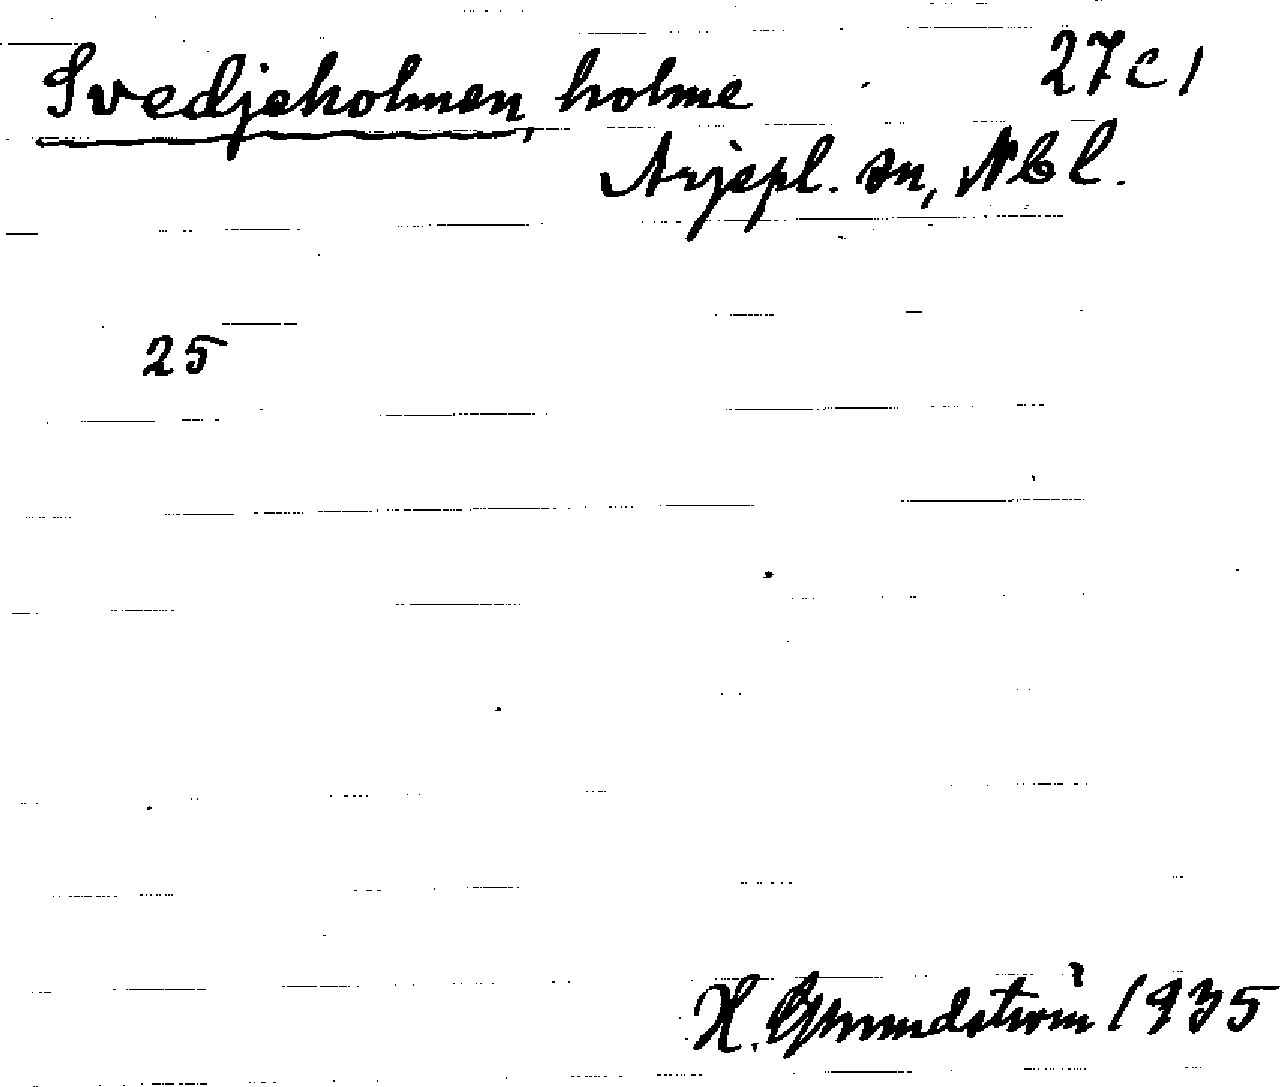 Svedjeholmen, holme 27 c 1
Arjepl. sn, Nbl.
25
H. Grundström 1935